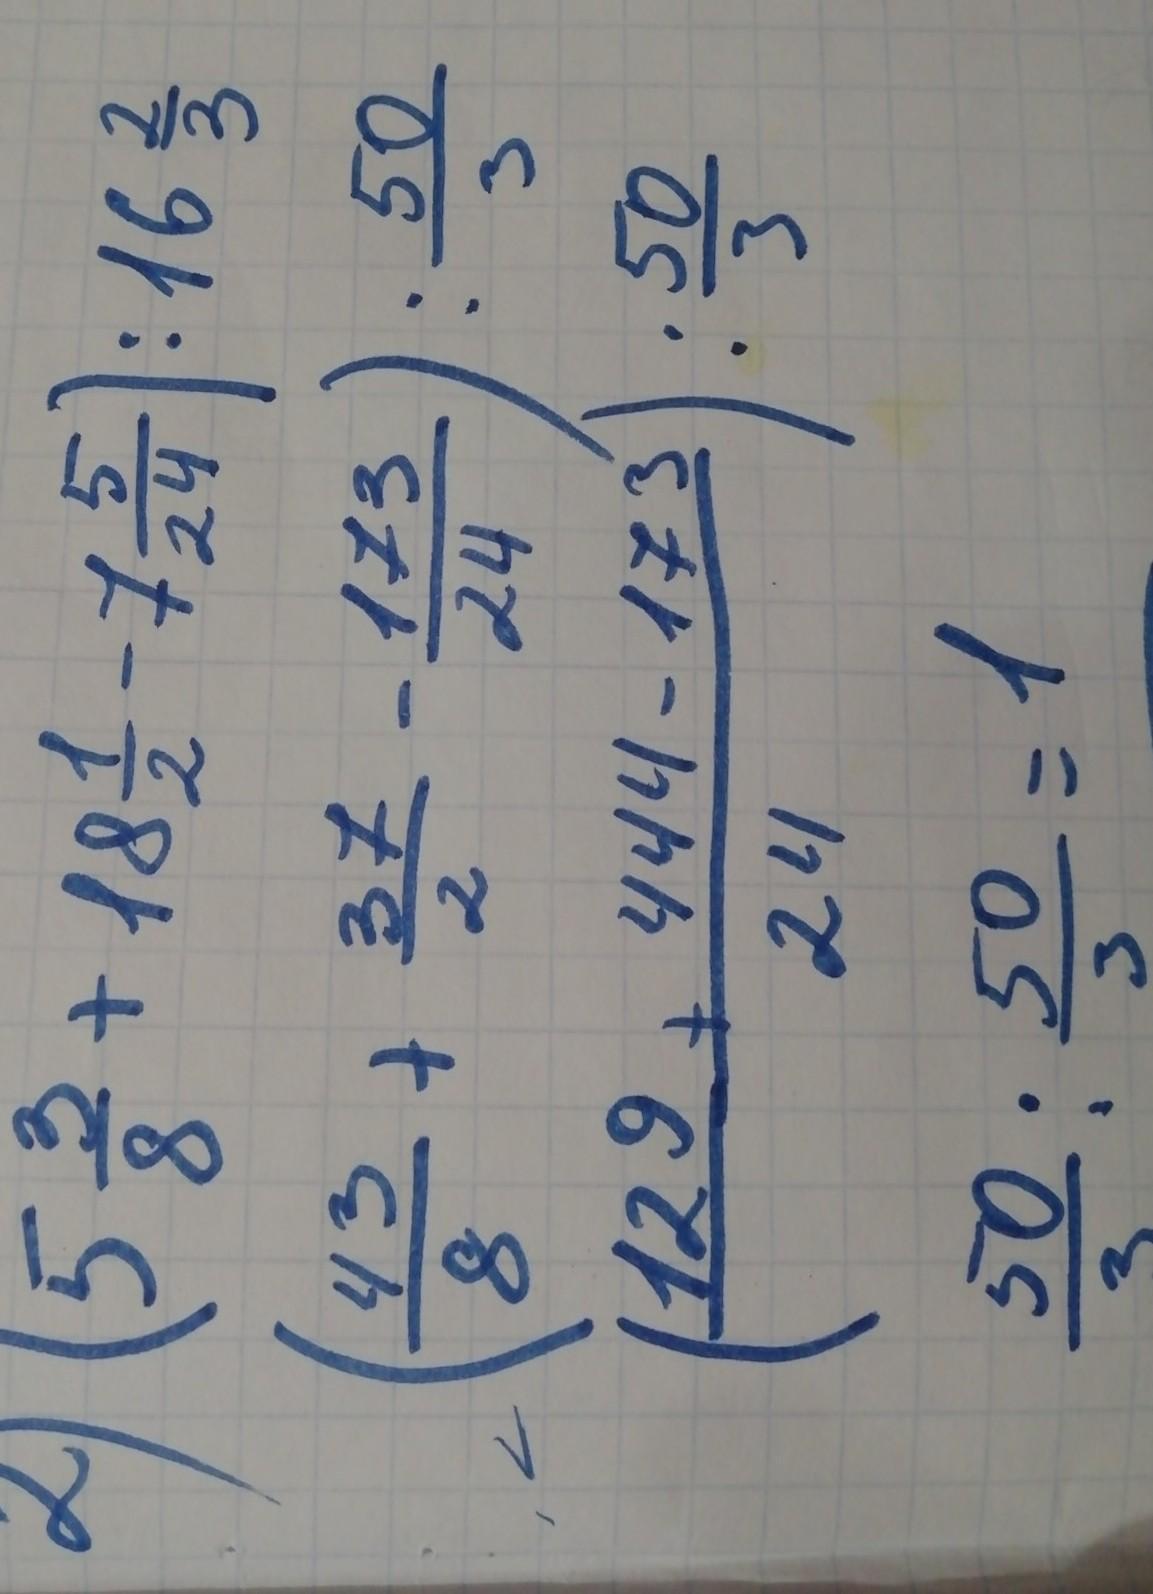 2) (5 3/8 + 18 1/2 - 7 5/24) : 16 2/3
(43/8 + 37/2 - 173/24) : 50/3
(129 + 444 - 173/24) : 50/3
50/3 : 50/3 = 1